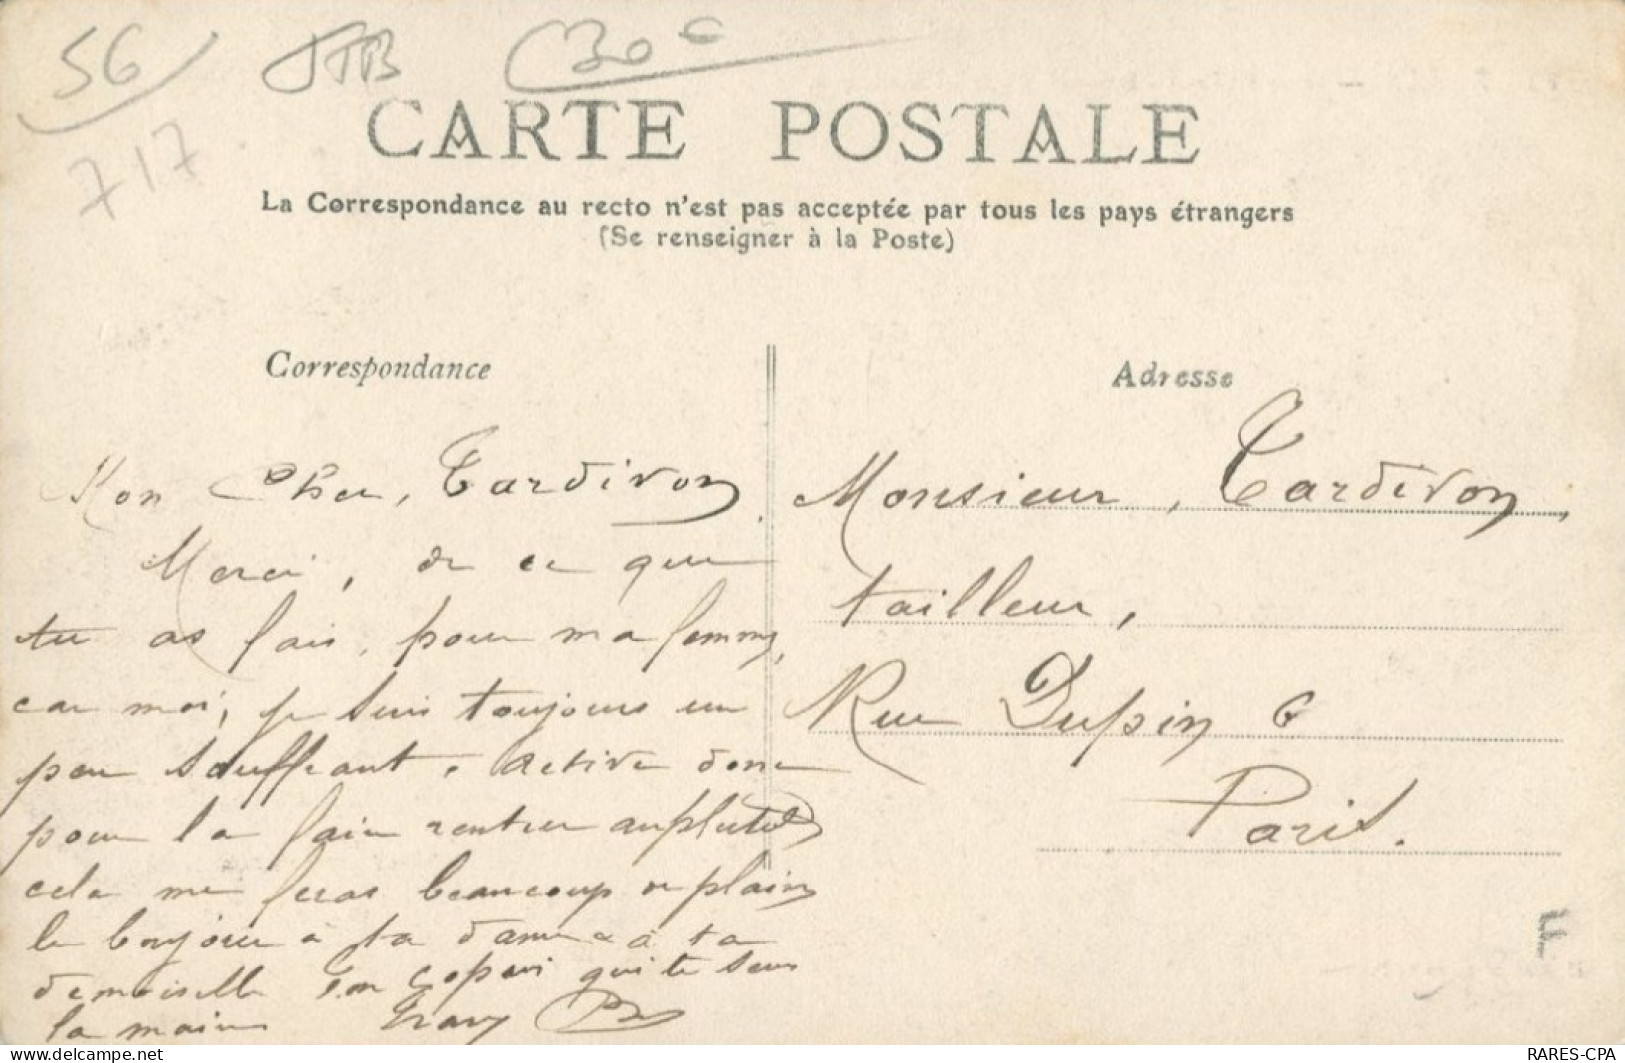 56 JTB C30c
717
CARTE POSTALE
La Correspondance au recto n'est pas acceptée par tous les pays étrangers
(Se renseigner à la Poste)
Correspondance
Mon Cher, Tardivon
Merci, de ce que
tu as fais, pour ma femme,
car moi, je suis toujours un
peu souffrant. active donc
pour la faire rentrer auplutot
cela me feras beaucoup de plaisir
le bonjour a ta dame & a ta
demoiselle ton copain qui te serre
la main
Adresse
Monsieur, Tardivon,
tailleur,
Rue Dupin 6
Paris.
https://www.delcampe.net
RARES-CPA